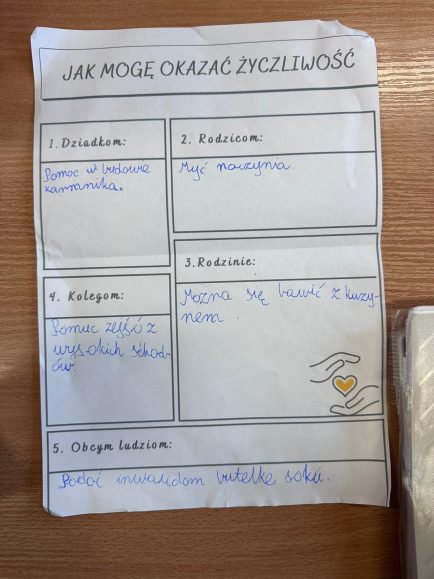 JAK MOGĘ OKAZAĆ ŻYCZLIWOŚĆ
1. Dziadkom:
Pomoc w budowie
karmnika.
2. Rodzicom:
Myć naczynia.
3. Rodzinie:
Można się bawić z kuzy-
nem
4. Kolegom:
Pomuc zejść z
wysokich schod-
ów.
5. Obcym ludziom:
Podać inwalidom butelkę soku.